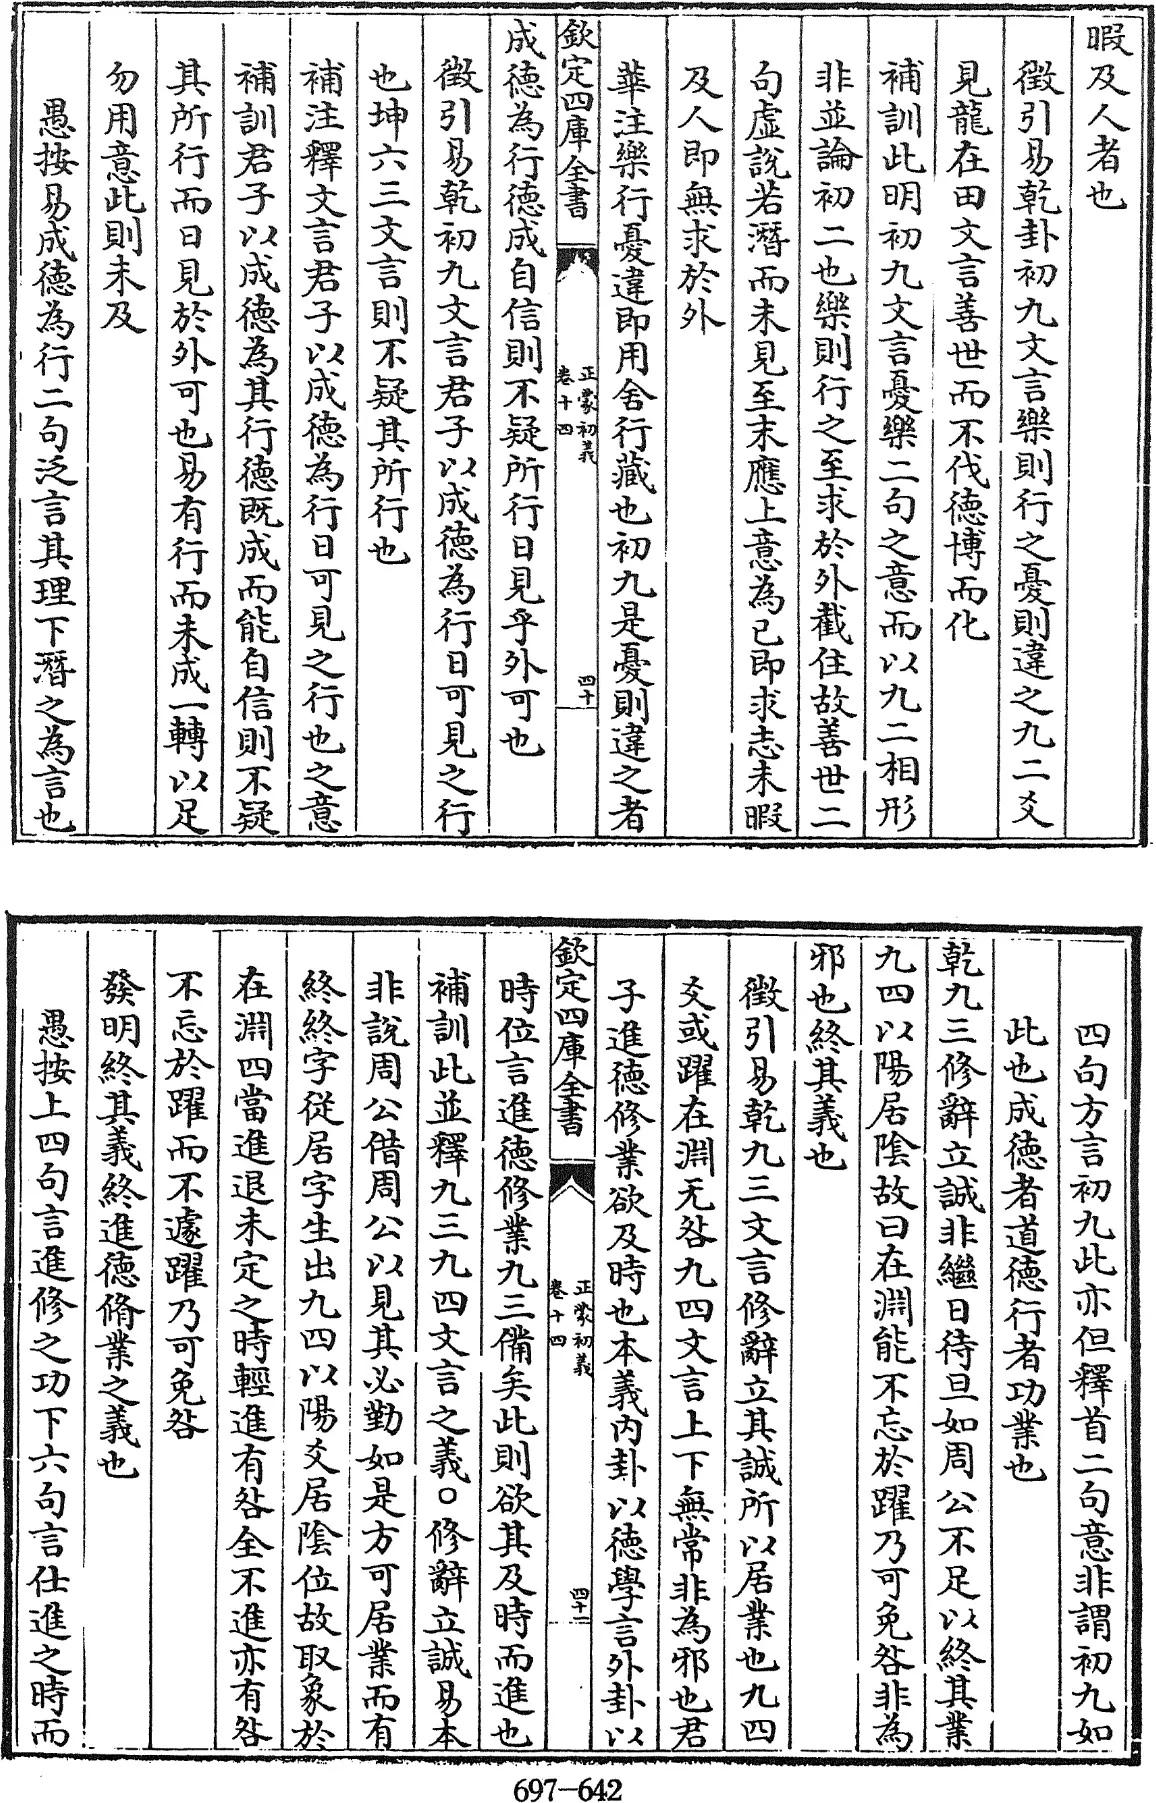 暇及人者也
徵引易乾卦初九文言樂則行之憂則違之九二爻
見龍在田文言善世而不伐德博而化
補訓此明初九文言憂樂二句之意而以九二相形
非並論初二也樂則行之至求於外截住故善世二
句虛說若潛而未見至末應上意為已即求志未暇
及人即無求於外
華注樂行憂違即用舍行藏也初九是憂則違之者
欽定四庫全書
正蒙初義
卷十四
四十
成德為行德成自信則不疑所行日見乎外可也
徵引易乾初九文言君子以成德為行日可見之行
也坤六三文言則不疑其所行也
補注釋文言君子以成德為行日可見之行也之意
補訓君子以成德為其行德既成而能自信則不疑
其所行而日見於外可也易有行而未成一轉以足
勿用意此則未及
愚按易成德為行二句泛言其理下潛之為言也
四句方言初九此亦但釋首二句意非謂初九如
此也成德者道德行者功業也
乾九三修辭立誠非繼日待旦如周公不足以終其業
九四以陽居陰故曰在淵能不忘於躍乃可免咎非為
邪也終其義也
徵引易乾九三文言修辭立其誠所以居業也九四
爻或躍在淵无咎九四文言上下無常非為邪也君
子進德修業欲及時也本義內卦以德學言外卦以
欽定四庫全書
正蒙初義
卷十四
四十一
時位言進德修業九三備矣此則欲其及時而進也
補訓此並釋九三九四文言之義○修辭立誠易本
非說周公借周公以見其必勤如是方可居業而有
終終字從居字生出九四以陽爻居陰位故取象於
在淵四當進退未定之時輕進有咎全不進亦有咎
不忘於躍而不遽躍乃可免咎
發明終其義終進德脩業之義也
愚按上四句言進修之功下六句言仕進之時而
697—642